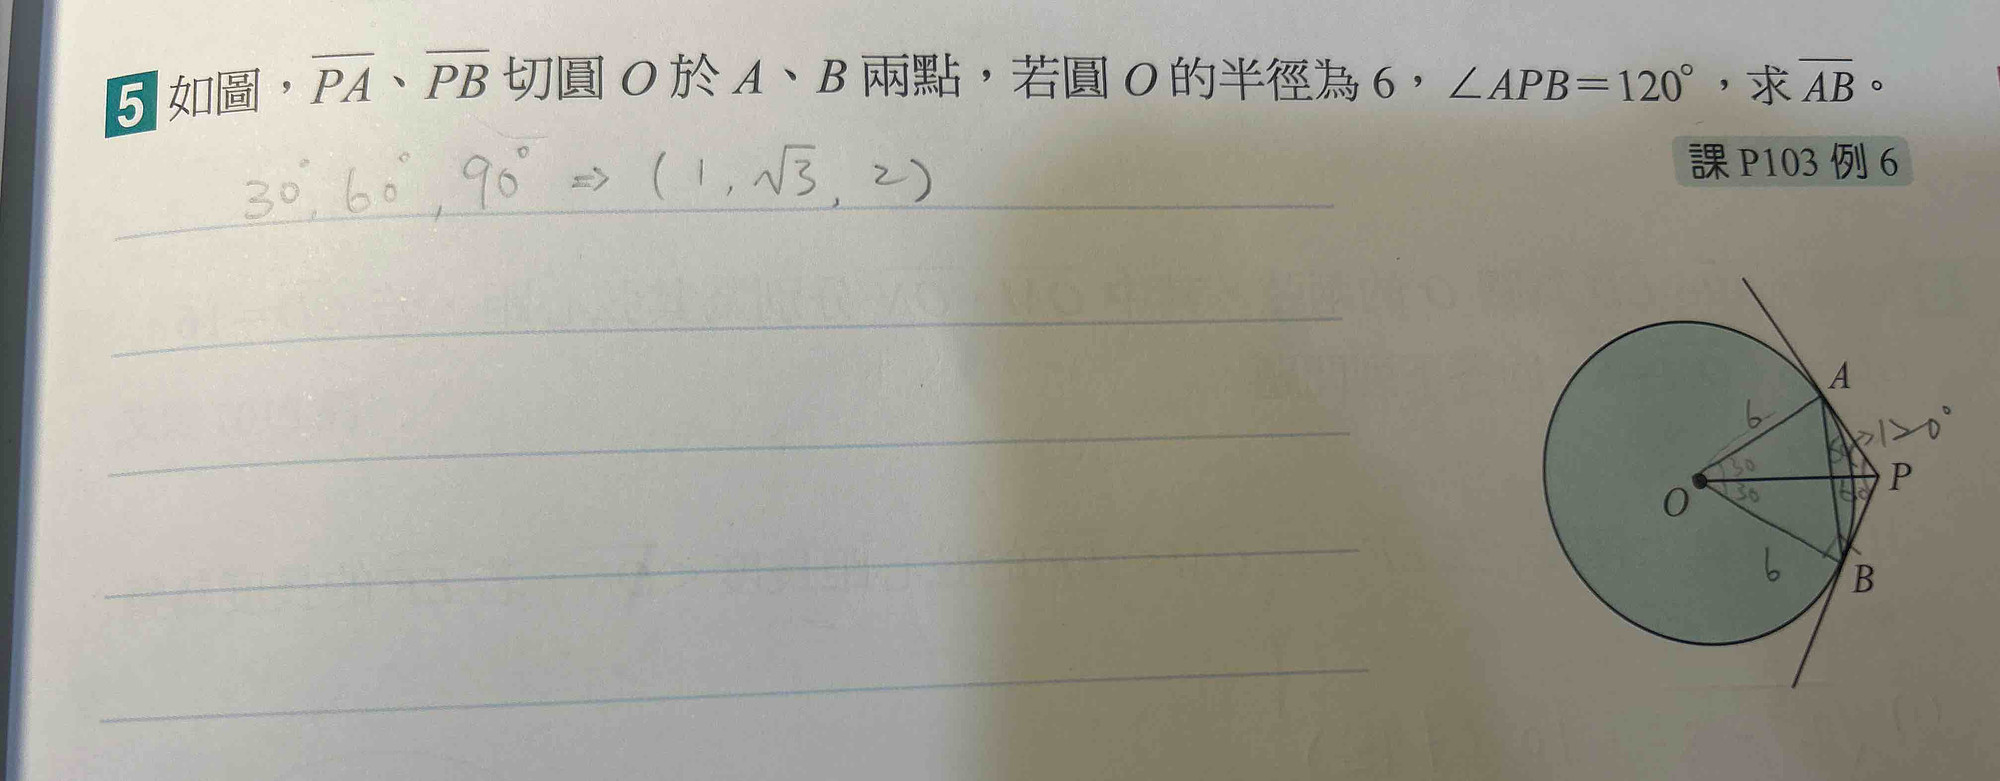 5 如圖，PA、PB 切圓 O 於 A、B 兩點，若圓 O 的半徑為 6，∠APB=120°，求 AB。
課 P103 例 6
30°, 60°, 90° ⇒ (1, √3, 2)
A
6
120°
30
60
P
O
30
60
6
B